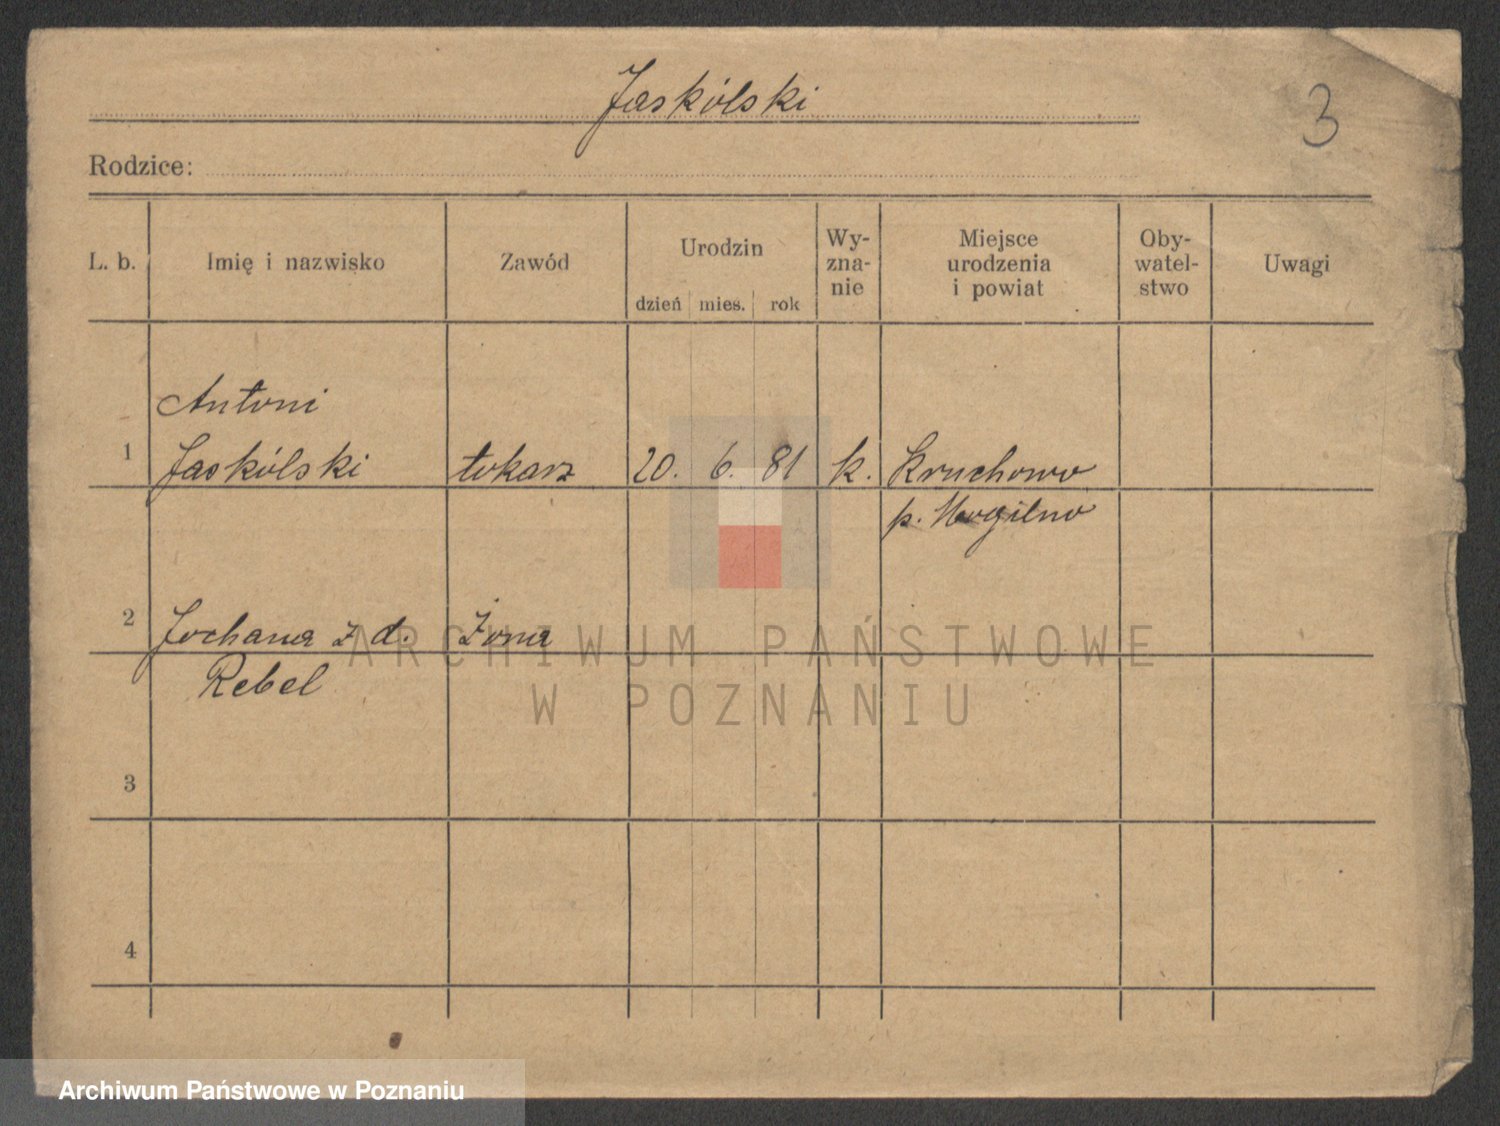 Jaskólski
3
Rodzice:
L. b. Imię i nazwisko Zawód Urodzin Wy-zna-nie Miejsce urodzenia i powiat Oby-watel-stwo Uwagi
dzień mies. rok
Antoni
1 Jaskólski tokarz 20. 6. 81 k. Kruchowo
p. Mogilno
2 Jochana z d. Żona
Rebel
3
4
ARCHIWUM PAŃSTWOWE
W POZNANIU
Archiwum Państwowe w Poznaniu